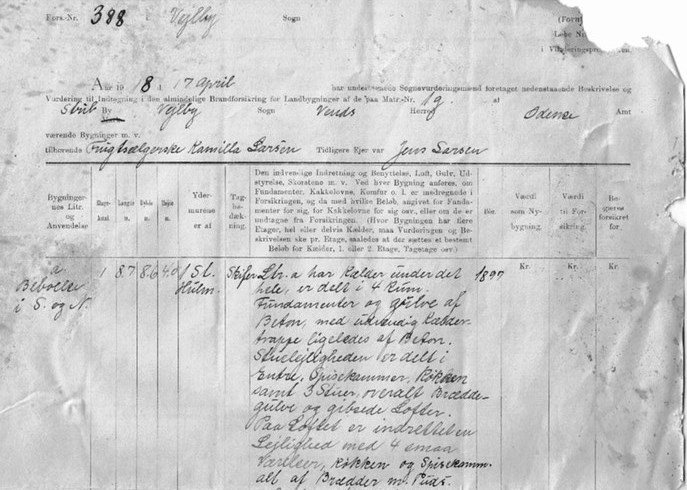 Fors.-Nr. 388 i Vejlby Sogn (Form
Løbe Nr.
i Vurderingspro
Aar 1918 17 April har undertegnede Sognevurderingsmænd foretaget nedenstaaende Beskrivelse og
Vurdering til Indtegning i den almindelige Brandforsikring for Landbygninger af de paa Matr.-Nr. 19 af
Strib By Vejlby Sogn Vends Herred Odense Amt
værende Bygninger m. v.
tilhørende Frugtsælgerske Kamilla Larsen Tidligere Ejer var Jens Larsen
Bygninger-
nes Litr.
og
Anvendelse
Etage-
Længde
Dybde
Højde
Yder-
murene
er af
Tag-
bedæk-
ning.
Den indvendige Indretning og Benyttelse, Loft, Gulv, Ud-
styrelse, Skorstene m. v. Ved hver Bygning anføres, om
Fundamenter, Kakkelovne, Komfur o. l. er medregnede i
Forsikringen, og da med hvilke Beløb, angivet for Funda-
menter for sig, for Kakkelovne for sig osv., eller om de er
undtagne fra Forsikringen. (Hvor Bygningen har flere
Etager, hel eller delvis Kælder, maa Vurderingen og Be-
skrivelsen ske pr. Etage, saaledes at der sættes et bestemt
Beløb for Kælder, 1. eller 2. Etage, Tagetage osv.)
Værdi
som Ny-
bygning.
Værdi
til For-
sikring.
Be-
gæres
forsikret
for.
a 1 87 86 40 1 St. Skifer Litr. a har Kælder under det 1897
Beboelse Hulm. hele, er delt i 4 Rum.
i S. og N. Fundamenter og gulve af
Beton, med udvendig Kælder-
trappe ligeledes af Beton.
Stuelejligheden er delt i
Entre, Spisekammer, Køkken
samt 3 Stuer, overalt Brædde-
gulve og gibsede Lofter.
Paa Loftet er indrettet en
Lejlighed med 4 smaa
Værelser, Køkken og Spisekamm-
alt af Brædder m. Puds.